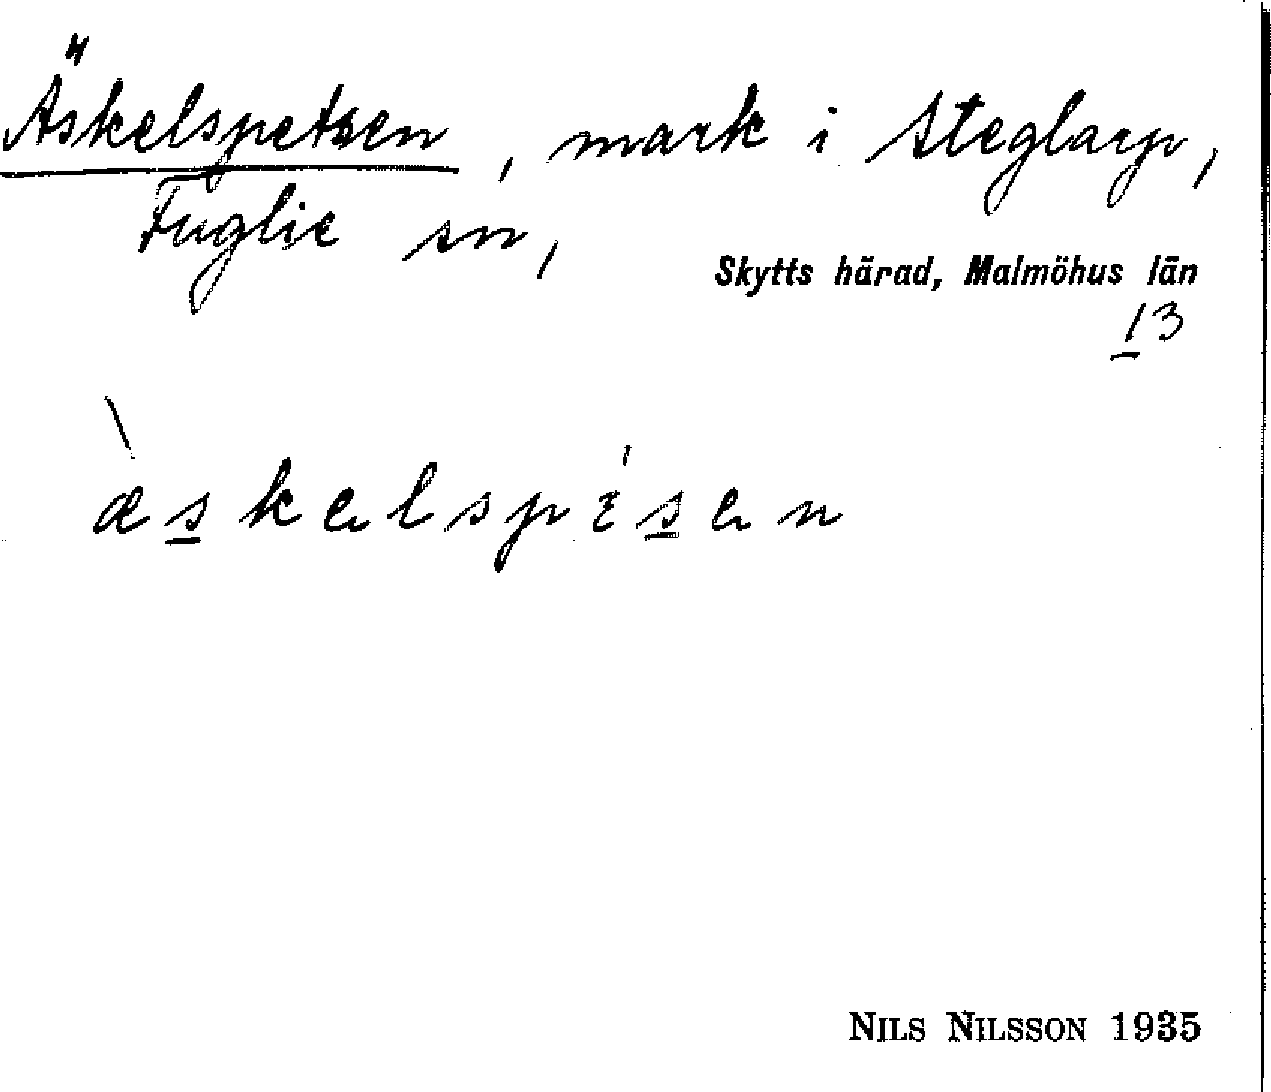 Äskelspetsen, mark i Steglarp,
Fuglie sn,
Skytts härad, Malmöhus län
13
æskelspisen
NILS NILSSON 1935